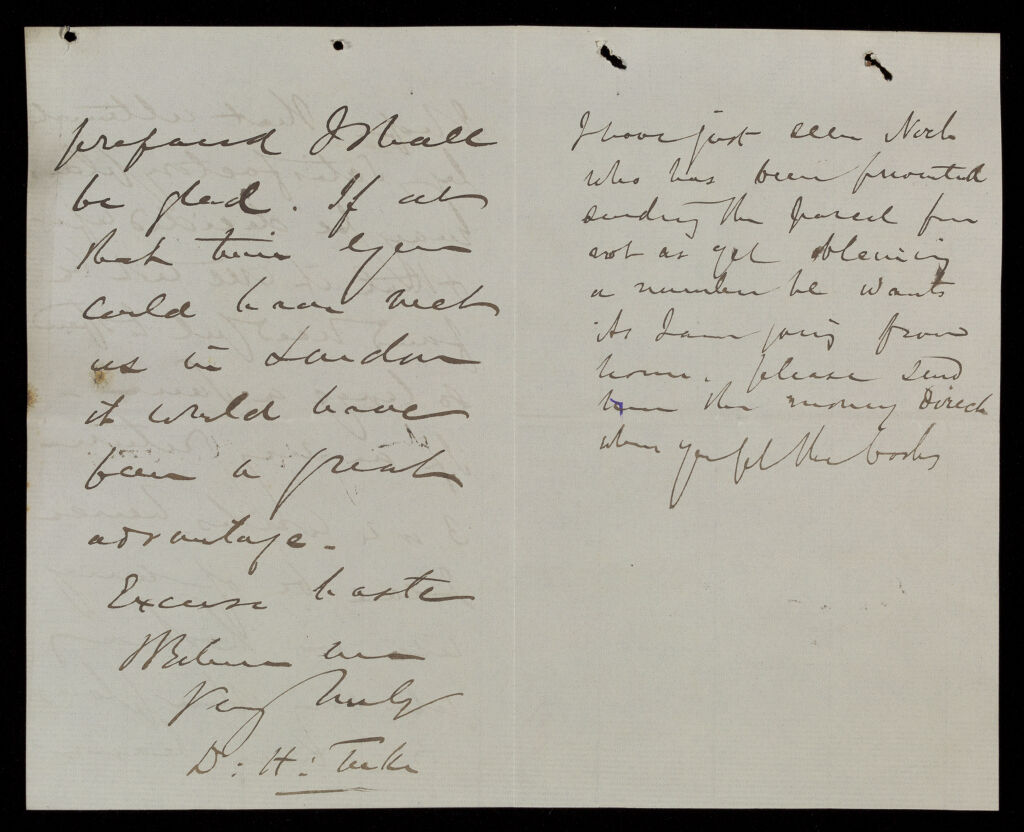 prepared I shall
be glad. If at
that time you
could have met
us in London
it would have
been a great
advantage.
Excuse haste
Believe me
Very truly
D: H: Tuke
I have just seen North
who has been prevented
sending the parcel from
not as yet obtaining
a number he wants
As I am going from
home, please send
him the money direct
when you get the books